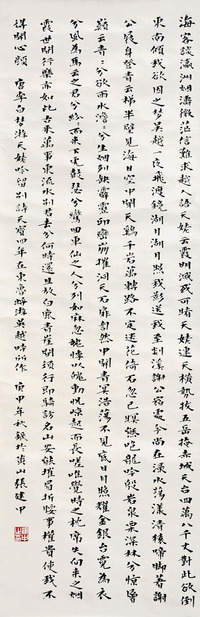 海客談瀛洲煙濤微茫信難求越人語天姥云霞明滅或可睹天姥連天橫勢拔五岳掩赤城天台四萬八千丈對此欲倒
東南傾我欲因之夢吳越一夜飛渡鏡湖月湖月照我影送我至剡溪謝公宿處今尚在淥水蕩漾清猿啼腳著謝
公屐身登青雲梯半壁見海日空中聞天雞千岩萬轉路不定迷花倚石忽已瞑熊咆龍吟殷岩泉慄深林兮驚層
巔云青青兮欲雨水澹澹兮生煙列缺霹靂丘巒崩摧洞天石扉訇然中開青冥浩蕩不見底日月照耀金銀台霓為衣
兮風為馬云之君兮紛紛而來下虎鼓瑟兮鸞回車仙之人兮列如麻忽魂悸以魄動恍驚起而長嗟唯覺時之枕席失向來之煙
霞世間行樂亦如此古來萬事東流水別君去兮何時還且放白鹿青崖間須行即騎訪名山安能摧眉折腰事權貴使我不
得開心顏 唐李白夢游天姥吟留別詩天寶四年在東魯將游吳越時所作 庚申年秋錄於黃山張建中